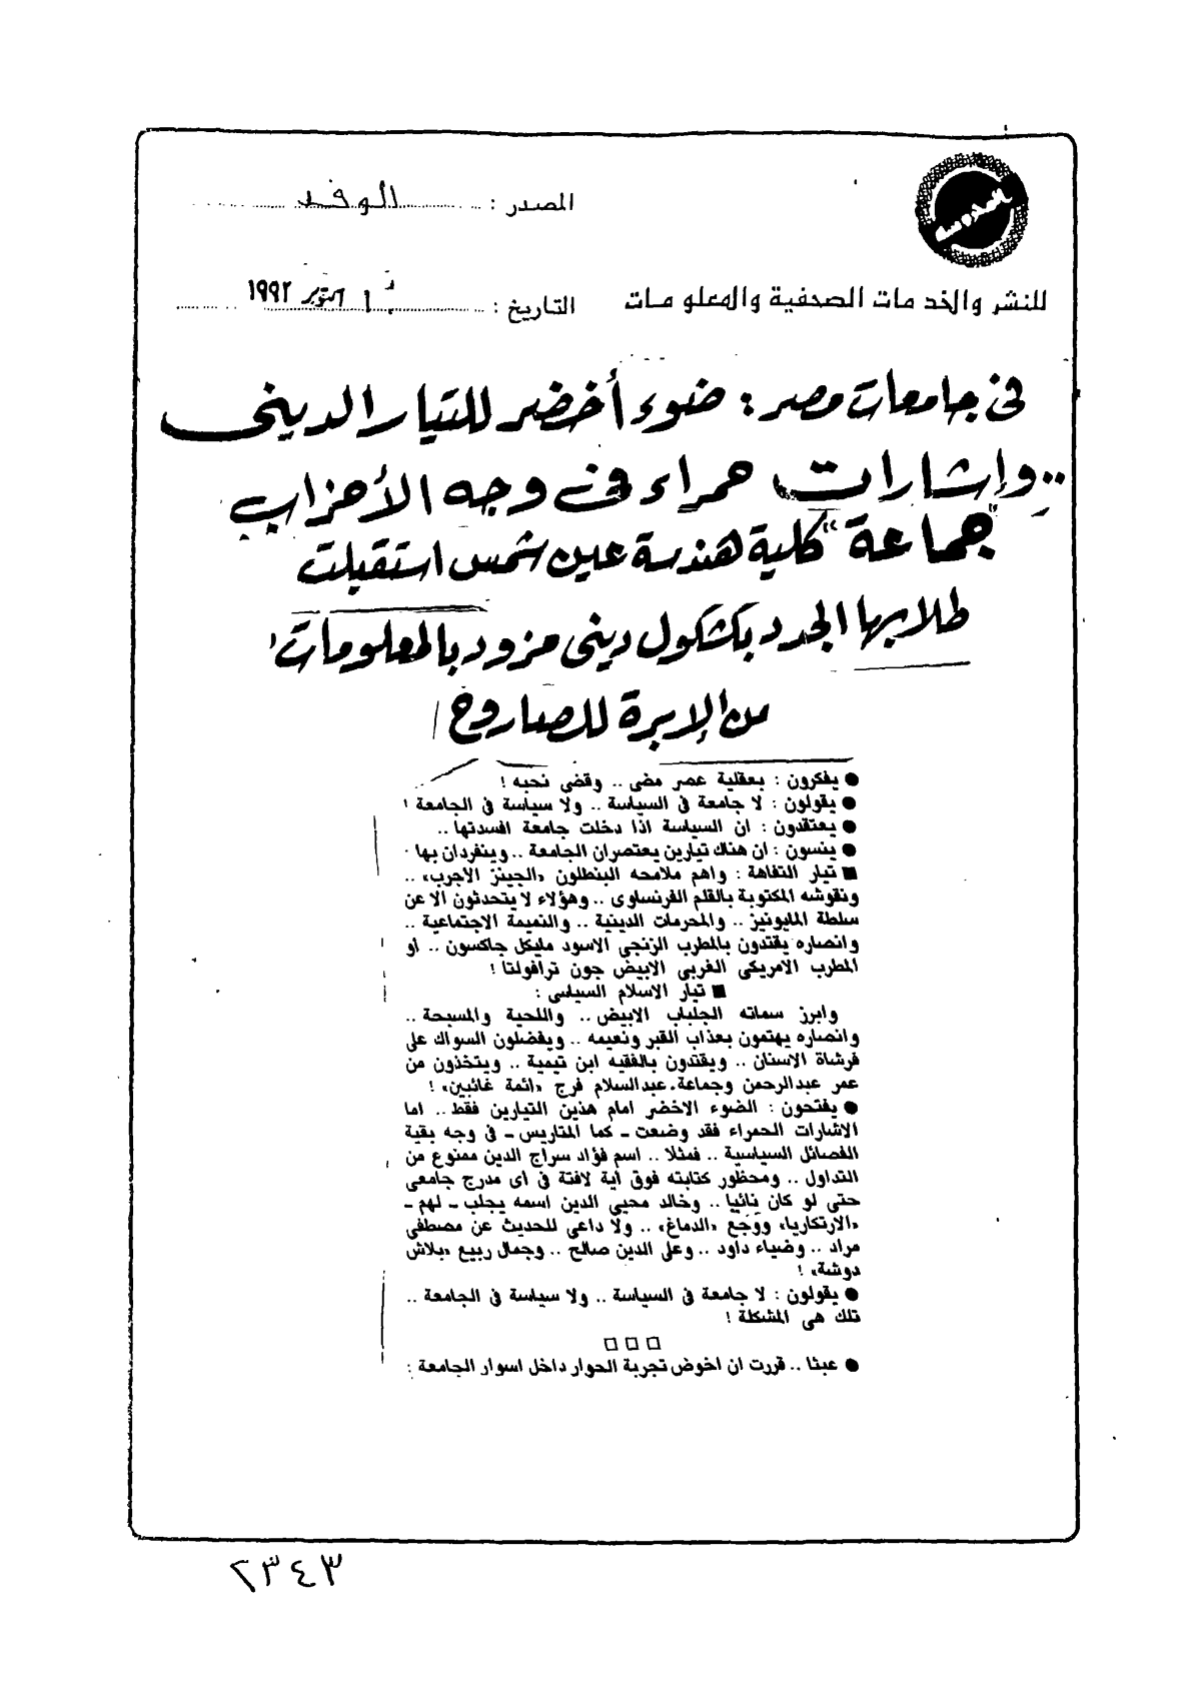 المحروسة
المصدر : الوفد
للنشر والخدمات الصحفية والمعلومات
التاريخ : ١ اكتوبر ١٩٩٢
فى جامعات مصر : ضوء أخضر للتيار الدينى
.. وإشارات حمراء فى وجه الأحزاب
"جماعة" كلية هندسة عين شمس استقبلت
طلابها الجدد بكشكول دينى مزود بالمعلومات
من الإبرة للصاروخ !
● يفكرون : بعقلية عصر مضى .. وقضى نحبه !
● يقولون : لا جامعة فى السياسة .. ولا سياسة فى الجامعة !
● يعتقدون : ان السياسة اذا دخلت جامعة افسدتها ..
● ينسون : ان هناك تيارين يعتصران الجامعة .. وينفردان بها .
■ تيار التفاهة : واهم ملامحه البنطلون «الجينز الأجرب» ..
ونقوشه المكتوبة بالقلم الفرنساوى .. وهؤلاء لا يتحدثون الا عن
سلطة المايونيز .. والمحرمات الدينية .. والنميمة الاجتماعية ..
وانصاره يقتدون بالمطرب الزنجى الاسود مايكل جاكسون .. أو
المطرب الامريكى الغربى الابيض جون ترافولتا !
■ تيار الاسلام السياسى :
وابرز سماته الجلباب الابيض .. واللحية والمسبحة ..
وانصاره يهتمون بعذاب القبر ونعيمه .. ويفضلون السواك على
فرشاة الاسنان .. ويقتدون بالفقيه ابن تيمية .. ويتخذون من
عمر عبدالرحمن وجماعة عبدالسلام فرج «ائمة غائبين» !
● يفتحون : الضوء الاخضر امام هذين التيارين فقط .. اما
الاشارات الحمراء فقد وضعت ـ كما المتاريس ـ فى وجه بقية
الفصائل السياسية .. فمثلا .. اسم فؤاد سراج الدين ممنوع من
التداول .. ومحظور كتابته فوق أية لافتة فى اى مدرج جامعى
حتى لو كان نائيا .. وخالد محيى الدين اسمه يجلب ـ لهم ـ
«الارتكاريا» ووجع «الدماغ» .. ولا داعى للحديث عن مصطفى
مراد .. وضياء داود .. وعلى الدين صالح .. وجمال ربيع «بلاش
دوشة» !
● يقولون : لا جامعة فى السياسة .. ولا سياسة فى الجامعة ..
تلك هى المشكلة !
□ □ □
● عبثا .. قررت ان اخوض تجربة الحوار داخل اسوار الجامعة :
٢٣٤٣